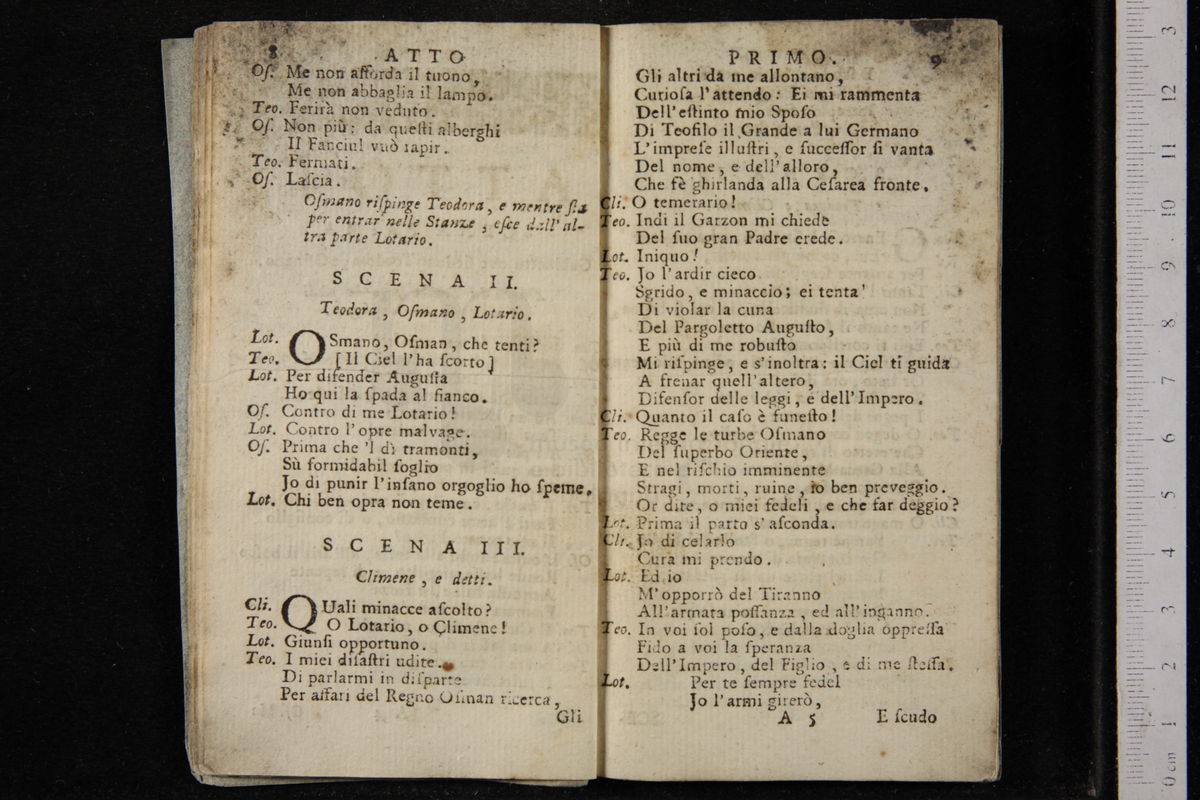 8 ATTO
Oſ. Me non aſſorda il tuono,
Me non abbaglia il lampo.
Teo. Ferirà non veduto.
Oſ. Non più: da queſti alberghi
Il Fanciul vuò rapir.
Teo. Fermati.
Oſ. Laſcia.
Oſmano riſpinge Teodora, e mentre ſta
per entrar nelle Stanze, eſce dall'al-
tra parte Lotario.
SCENA II.
Teodora, Oſmano, Lotario.
Lot. OSmano, Oſman, che tenti?
Teo. [Il Ciel l'ha ſcorto]
Lot. Per difender Auguſta
Ho qui la ſpada al fianco.
Oſ. Contro di me Lotario!
Lot. Contro l'opre malvage.
Oſ. Prima che 'l dì tramonti,
Sù formidabil ſoglio
Jo di punir l'inſano orgoglio ho ſpeme.
Lot. Chi ben opra non teme.
SCENA III.
Climene, e detti.
Cli. QUali minacce aſcolto?
Teo. O Lotario, o Climene!
Lot. Giunſi opportuno.
Teo. I miei diſaſtri udite.
Di parlarmi in diſparte
Per affari del Regno Oſman ricerca,
Gli
PRIMO. 9
Gli altri da me allontano,
Curioſa l'attendo: Ei mi rammenta
Dell'eſtinto mio Spoſo
Di Teofilo il Grande a lui Germano
L'impreſe illuſtri, e ſucceſſor ſi vanta
Del nome, e dell'alloro,
Che fè ghirlanda alla Ceſarea fronte.
Cli. O temerario!
Teo. Indi il Garzon mi chiede
Del ſuo gran Padre erede.
Lot. Iniquo!
Teo. Jo l'ardir cieco
Sgrido, e minaccio; ei tenta
Di violar la cuna
Del Pargoletto Auguſto,
E più di me robuſto
Mi riſpinge, e s'inoltra: il Ciel ti guida
A frenar quell'altero,
Difenſor delle leggi, e dell'Impero.
Cli. Quanto il caſo è funeſto!
Teo. Regge le turbe Oſmano
Del ſuperbo Oriente,
E nel riſchio imminente
Stragi, morti, ruine, io ben preveggio.
Or dite, o miei fedeli, e che far deggio?
Lot. Prima il parto s'aſconda.
Cli. Jo di celarlo
Cura mi prendo.
Lot. Ed io
M'opporrò del Tiranno
All'armata poſſanza, ed all'inganno.
Teo. In voi ſol poſo, e dalla doglia oppreſſa
Fido a voi la ſperanza
Dell'Impero, del Figlio, e di me ſteſſa.
Lot. Per te ſempre fedel
Jo l'armi girerò,
A 5 E ſcudo
0 cm 1 2 3 4 5 6 7 8 9 10 11 12 3